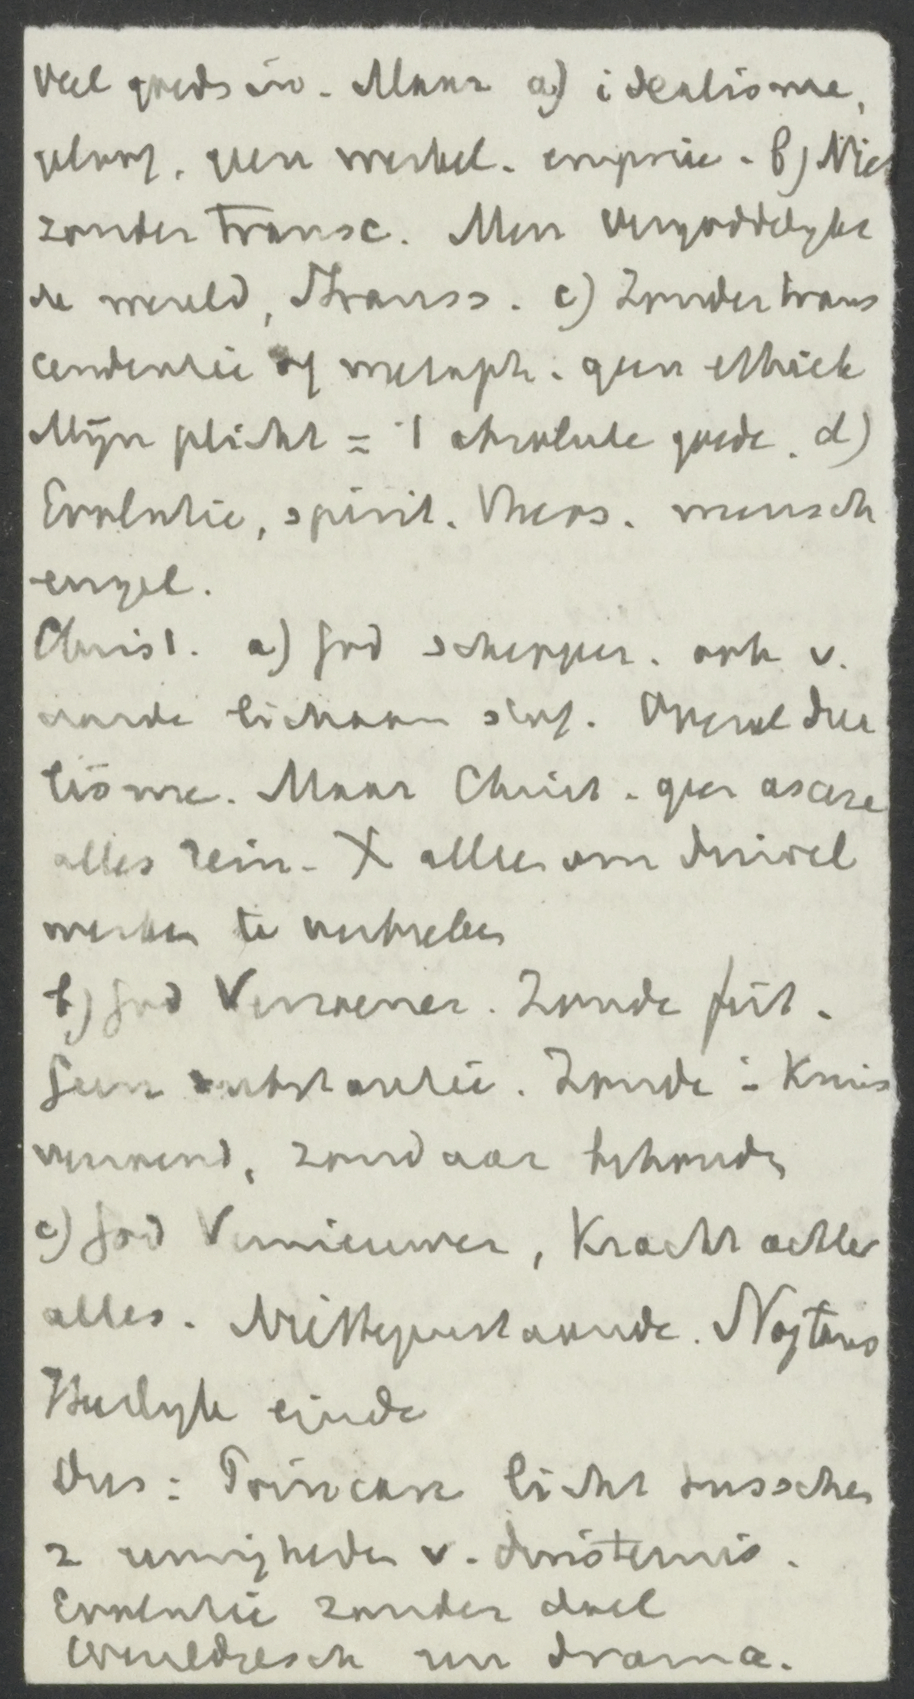 Veel goeds in. Maar a) idealisme,
geloof, geen werkel. empirie. b) Niet
zonder transc. Men vergoddelykt
de wereld, Strauss. c) Zonder trans
cendentie of metaph. geen ethiek
Mijn plicht = 't absolute goede. d)
Evolutie, spirit. Theos. mensch
engel.
Christ. a) God schepper. ook v.
aarde lichaam stof. Overal dua
lisme. Maar Christ. geen ascese
alles rein. X alles om duivel
werken te verbreken
b) God Verzoener. Zonde feit.
Geen substantie. Zonde in Kruis
verzoend, zondaar behouden
c) God Vernieuwer, Kracht achter
alles. Nogtans
Heerlyk einde
Dus: Poincaré licht tusschen
2 eeuwigheden v. duisternis.
Evolutie zonder doel
Wereldgesch een drama.